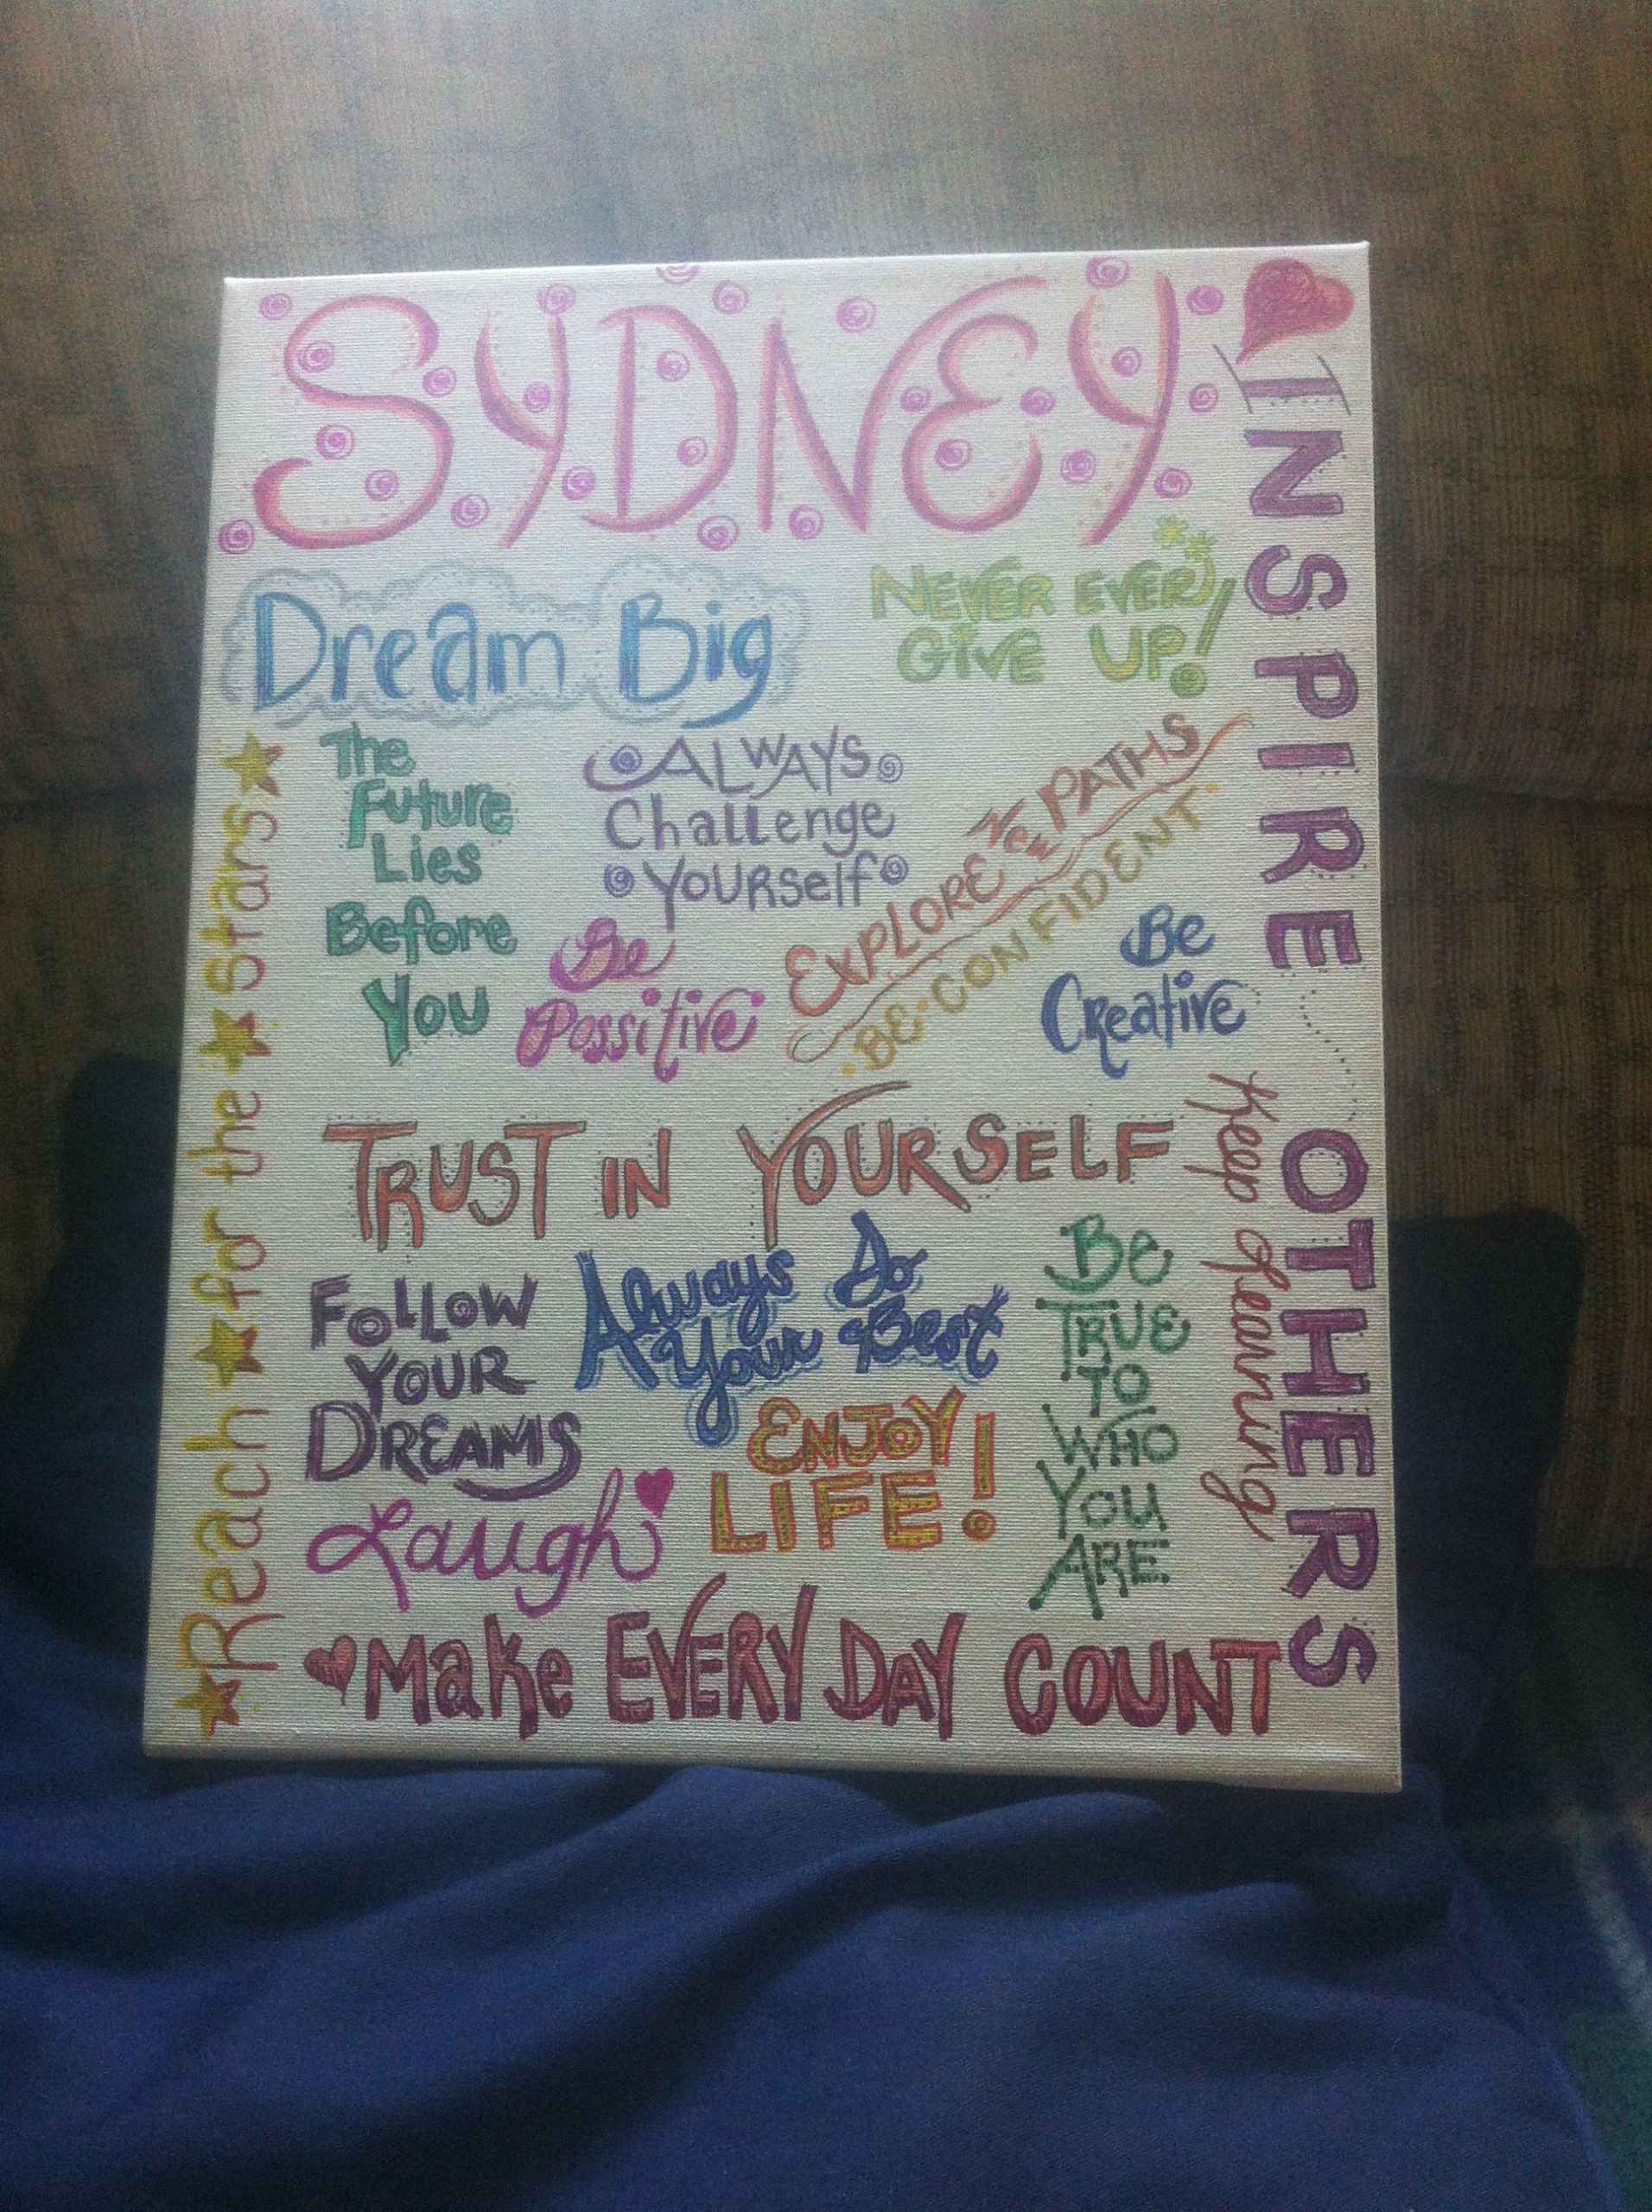 SYDNEY
Dream Big
NEVER EVER
GIVE UP!
The
Future
Lies
Before
You
ALWAYS
Challenge
Yourself
EXPLORE NEW PATHS
BE CONFIDENT
Be
Possitive
Be
Creative
TRUST IN YOURSELF
FOLLOW
YOUR
DREAMS
Always Do
Your Best
BE
TRUE
TO
WHO
YOU
ARE
ENJOY
LIFE!
Laugh
Make EVERY DAY COUNT
Reach for the Stars
INSPIRE OTHERS
Keep Learning